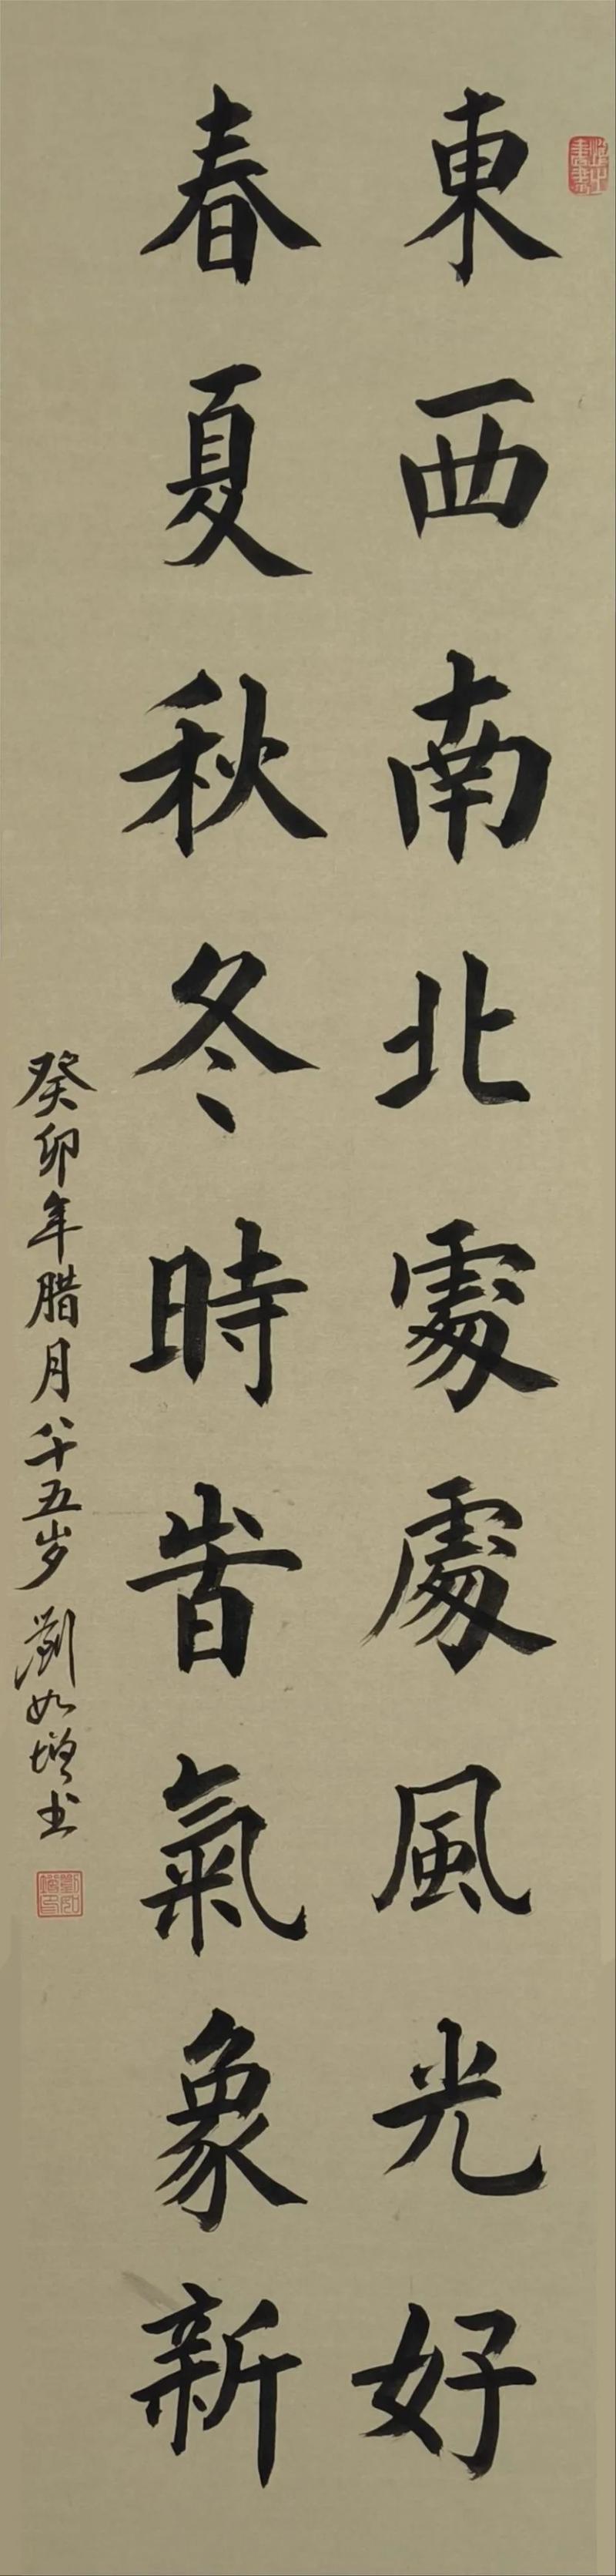 東西南北處處風光好
春夏秋冬時旹氣象新
癸卯年腊月八十五岁劉如增书